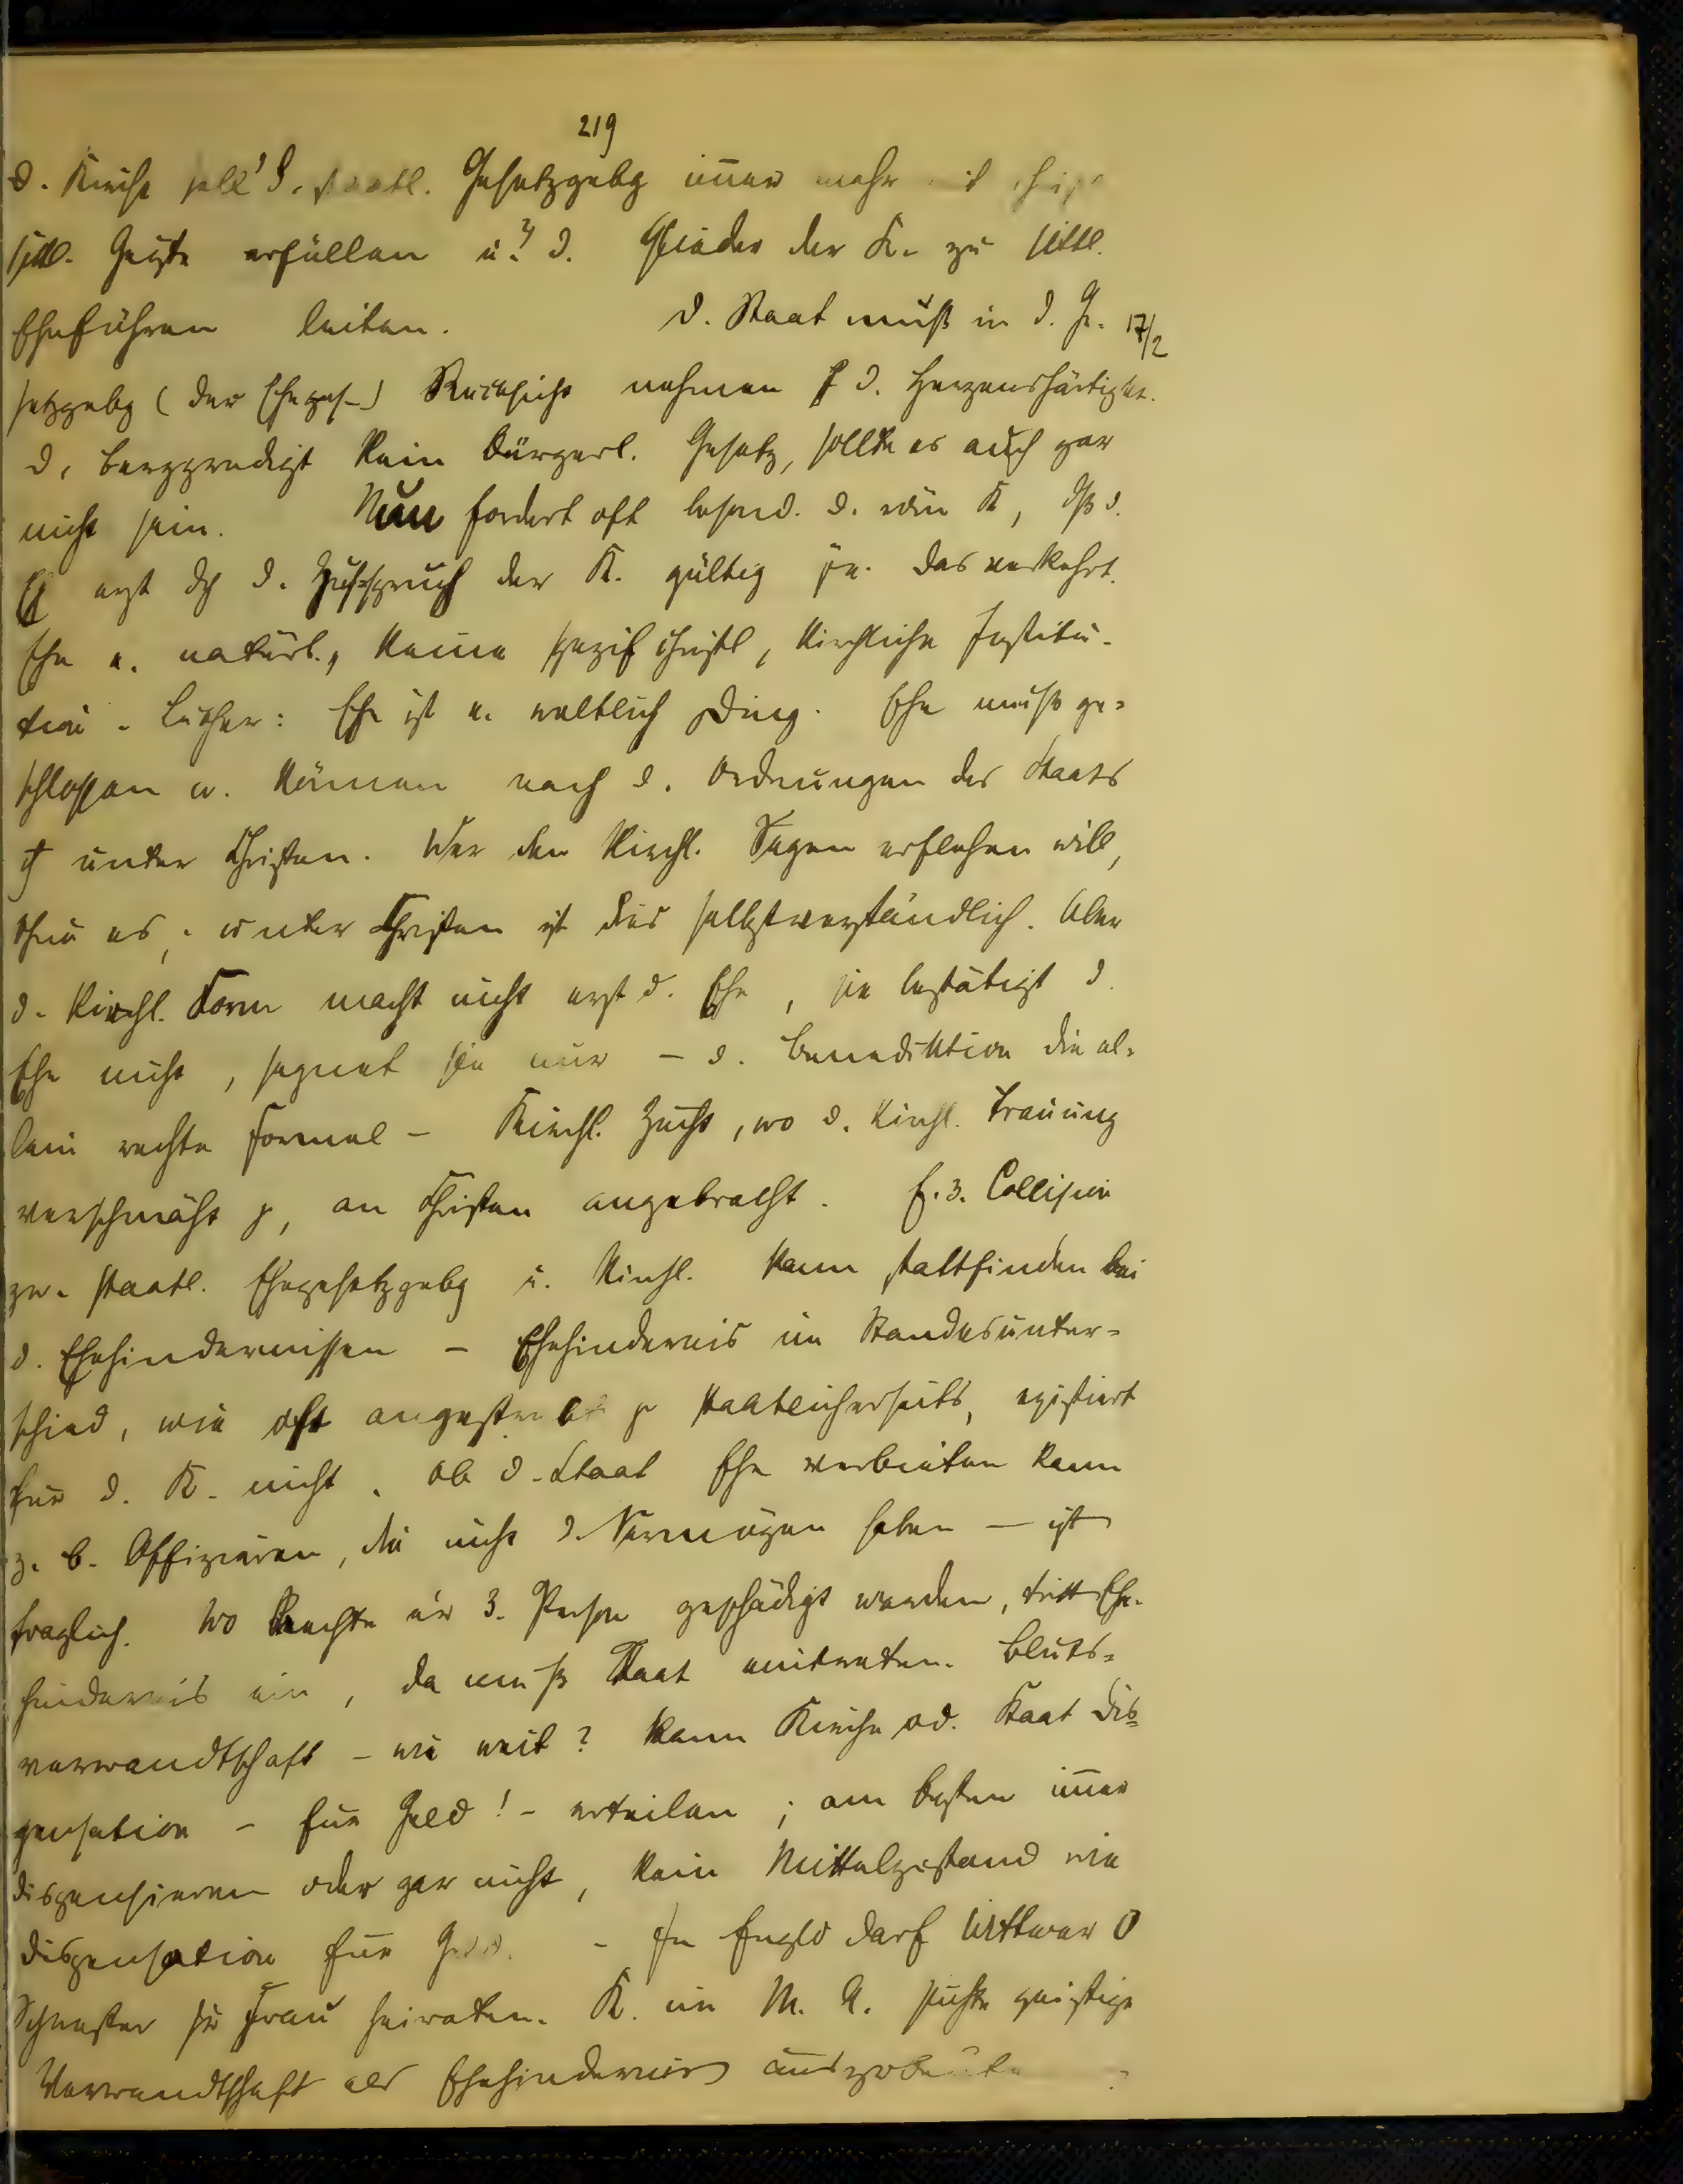 219
D. Kirche soll ¹⁾ d. staatl. Gesetzgebg im̄er mehr mit
sittl. Geiste erfüllen u. ²⁾ d. Glieder der K. zu sittl.
Eheführen leiten. D. Staat muß in d. Ge- 17/2
setzgebg (der Eheges-) Rücksicht nehmen f d. Herzenshärtigkt.
D. Bergpredigt kein bürgerl. Gesetz, sollte es auch gar
nicht sein. Nun fordert oft besond. d. röm K, dß d.
E erst dch d. Zuspruch der K. gültig sei. Das verkehrt.
Ehe e. natürl., keine spezif christl, kirchliche Institu-
tion. Luther: Ehe ist e. weltlich Ding. Ehe muß ge-
schlossen w. können nach d. Ordnungen des Staats
unter Christen. Wer den kirchl. Segen erflehen will,
thu es; unter Christen ist dies selbstverständlich. Aber
d. kirchl. Form macht nicht erst d. Ehe, sie bestätigt d.
Ehe nicht, segnet sie nur – d. Benediktion die al-
lein rechte Formel – Kirchl. Zucht, wo d. kirchl. Trauung
verschmäht, an Christen angebracht. E. 3. Collision
zw. staatl. Ehegesetzgebg u. kirchl. kann stattfinden bei
d. Ehehindernissen – Ehehindernis im Standesunter-
schied, wie oft angestrebt staatlicherseits, existiert
für d. K. nicht. Ob d. Staat Ehe verbieten kann
z. B. Offizieren, die nicht d. Vermögen haben – ist
fraglich. Wo Rechte er 3. Person geschädigt werden, tritt Ehe-
hindernis ein, da muß Staat eintreten. Bluts-
verwandtschaft – wie weit? Kann Kirche od. Staat Dis-
pensation – für Geld! – erteilen; am besten im̄er
dispensieren oder gar nicht, kein Mittelzustand wie
Dispensation für Geld. – In Engld darf Wittwer
Schwester sr Frau heiraten. K. im M. A. suchte geistige
Verwandtschaft als Ehehindernis auszubeuten